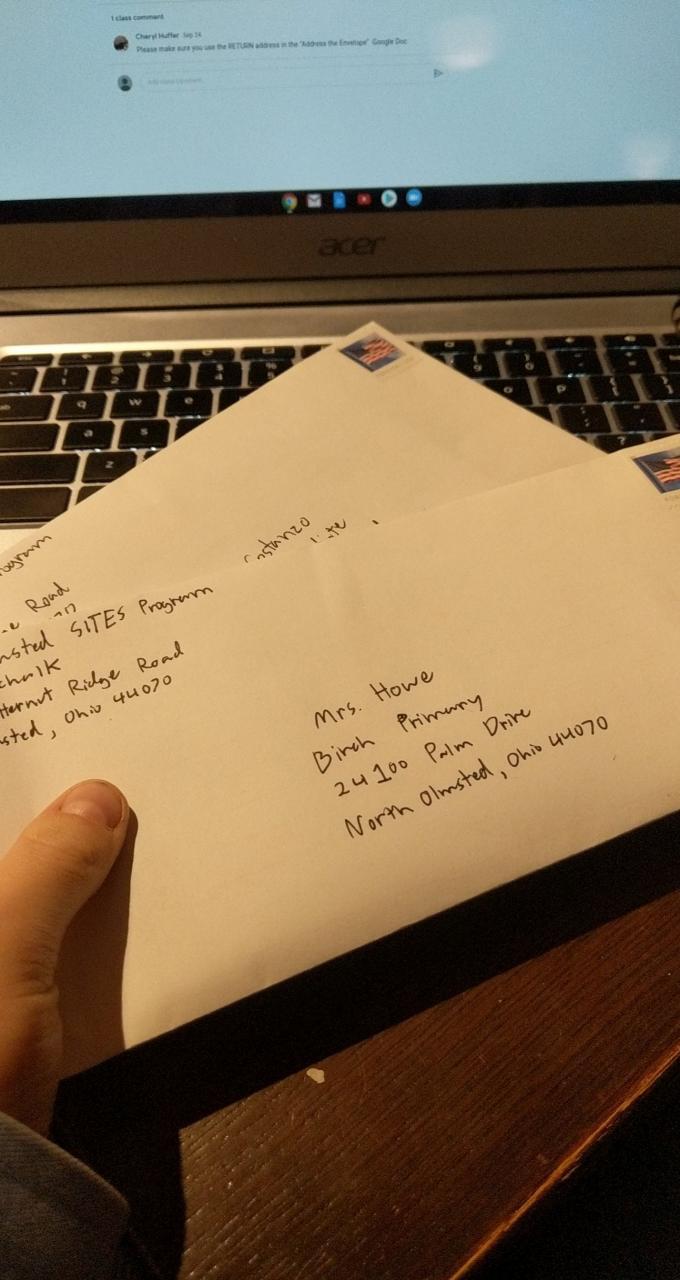 1 class comment
Cheryl Huffer Sep 24
Please make sure you use the RETURN address in the "Address the Envelope" Google Doc
Add class comment
acer
q w e
a s
z
o p
Road
SITES Program
Ridge Road
Ohio 44070
Mrs. Howe
Birch Primary
24100 Palm Drive
North Olmsted, Ohio 44070